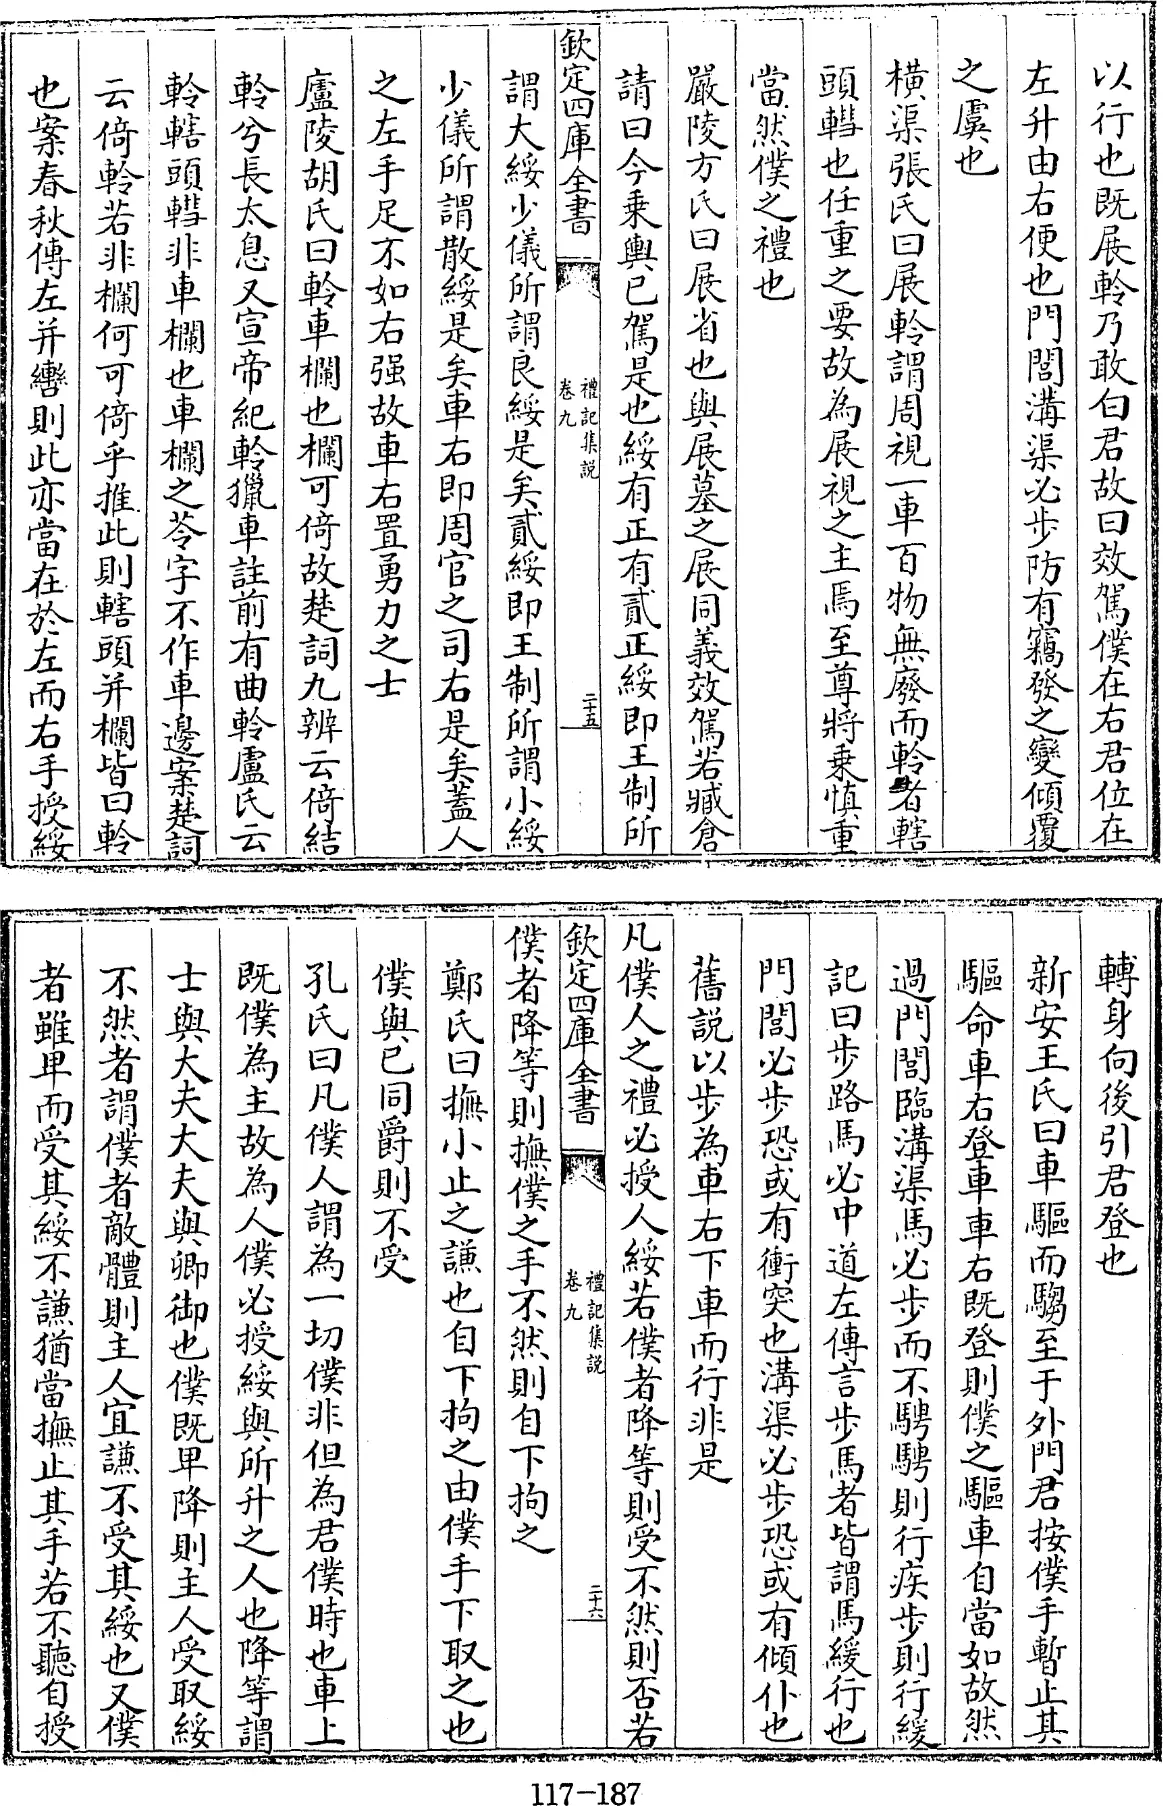 以行也既展軨乃敢白君故曰效駕僕在右君位在
左升由右便也門閭溝渠必步防有竊發之變傾覆
之虞也
橫渠張氏曰展軨謂周視一車百物無廢而軨者轄
頭轊也任重之要故為展視之主焉至尊將乗慎重
當然僕之禮也
嚴陵方氏曰展省也與展墓之展同義效駕若臧倉
請曰今乗輿已駕是也綏有正有貳正綏即王制所
欽定四庫全書
禮記集説
卷九
二十五
謂大綏少儀所謂良綏是矣貳綏即王制所謂小綏
少儀所謂散綏是矣車右即周官之司右是矣蓋人
之左手足不如右强故車右置勇力之士
廬陵胡氏曰軨車欄也欄可倚故楚詞九辨云倚結
軨兮長太息又宣帝紀軨獵車註前有曲軨盧氏云
軨轄頭轊非車欄也車欄之苓字不作車邊案楚詞
云倚軨若非欄何可倚乎推此則轄頭并欄皆曰軨
也案春秋傳左并轡則此亦當在於左而右手授綏
轉身向後引君登也
新安王氏曰車驅而騶至于外門君按僕手暫止其
驅命車右登車車右既登則僕之驅車自當如故然
過門閭臨溝渠馬必步而不騁騁則行疾步則行緩
記曰步路馬必中道左傳言步馬者皆謂馬緩行也
門閭必步恐或有衝突也溝渠必步恐或有傾仆也
舊説以步為車右下車而行非是
凡僕人之禮必授人綏若僕者降等則受不然則否若
欽定四庫全書
禮記集説
卷九
二十六
僕者降等則撫僕之手不然則自下拘之
鄭氏曰撫小止之謙也自下拘之由僕手下取之也
僕與已同爵則不受
孔氏曰凡僕人謂為一切僕非但為君僕時也車上
既僕為主故為人僕必授綏與所升之人也降等謂
士與大夫大夫與卿御也僕既卑降則主人受取綏
不然者謂僕者敵體則主人宜謙不受其綏也又僕
者雖卑而受其綏不謙猶當撫止其手若不聽自授
117-187